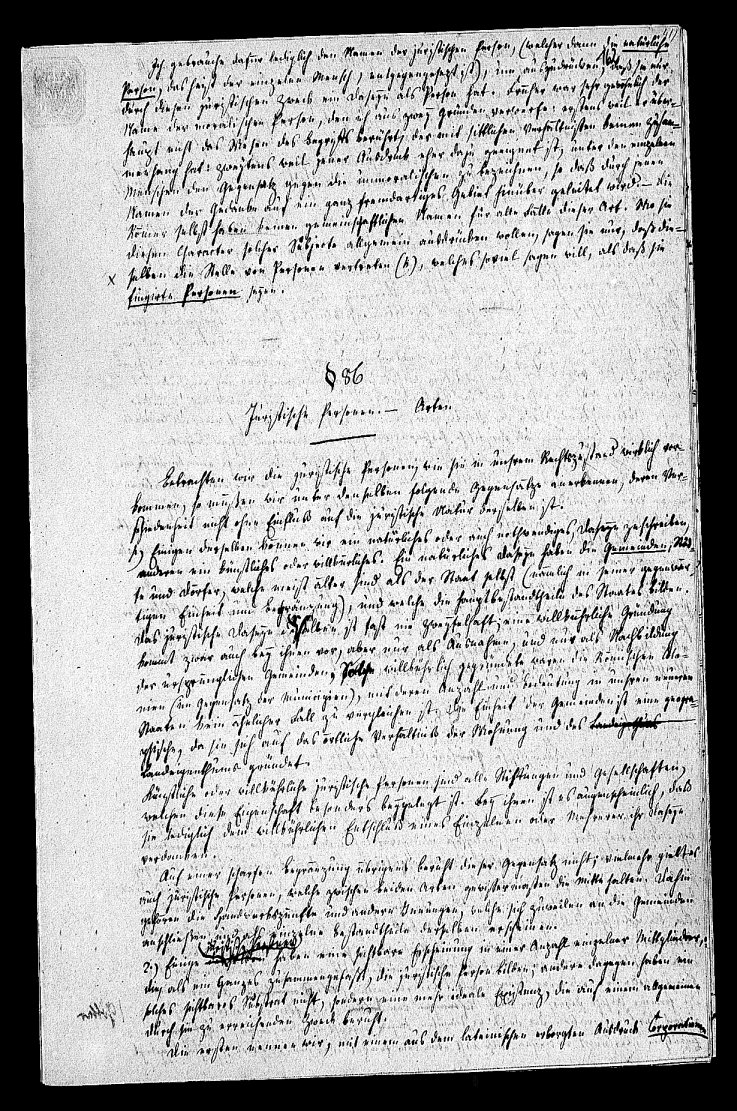 Ich gebrauche dafür lediglich den Namen der juristischen Person, (welcher dann die natürliche
Person, das heißt der einzelne Mensch, entgegengesetzt ist), um auszudrücken, daß sie nur
durch diesen juristischen Zweck ein Daseyn als Person hat. Früher war sehr gewöhnlich der
Name der moralischen Person, den ich aus zwey Gründen verwerfe: erstens weil er über-
haupt nicht das Wesen des Begriffs berührt, der mit sittlichen Verhältnissen keinen Zusam-
menhang hat: zweytens weil jener Ausdruck eher dazu geeignet ist, unter den einzelnen
Menschen den Gegensatz gegen die unmoralischen zu bezeichnen, so daß durch jenen
Namen der Gedanke auf ein ganz fremdartiges Gebiet hinüber geleitet wird. — Die
Römer selbst haben keinen gemeinschaftlichen Namen für alle Fälle dieser Art. Wo sie
diesen Character solcher Subjecte allgemein ausdrücken wollen, sagen sie nur, daß die-
selben die Stelle von Personen vertreten (b), welches soviel sagen will, als daß sie
x fingirte Personen seyen.
§ 86
Juristische Personen. — Arten
Betrachten wir die juristische Personen, wie sie in unsrem Rechtszustand wirklich vor-
kommen, so müssen wir unter denselben folgende Gegensätze anerkennen, deren Ver-
schiedenheit nicht ohne Einfluß auf die juristische Natur derselben ist.
1) Einigen derselben können wir ein natürliches oder auch nothwendiges Daseyn zuschreiben,
anderen ein künstliches oder willkürliches. Ein natürliches Daseyn haben die Gemeinden, Städ-
te und Dörfer, welche meist älter sind als der Staat selbst (nämlich in seiner gegenwär-
tigen Einheit und Begränzung), und welche die Hauptbestandtheile des Staates bilden.
Das juristische Daseyn derselben ist fast nie zweifelhaft; eine willkührliche Gründung
kommt zwar auch bey ihnen vor, aber nur als Ausnahme, und nur als Nachbildung
der ursprünglichen Gemeinden; Solche willkührlich gegründete waren die Römischen Colo-
nien (im Gegensatz der Municipien), mit deren Anzahl und Bedeutung in unsren neueren
Staaten kein ähnlicher Fall zu vergleichen ist. Die Einheit der Gemeinden ist eine geogra-
phische, da sie sich auf das örtliche Verhältniß der Wohnung und des
Landeigenthums gründet.
Künstliche oder willkührliche juristische Personen sind alle Stiftungen und Gesellschaften,
welchen diese Eigenschaft besonders beygelegt ist. Bey ihnen ist es augenscheinlich, daß
sie lediglich dem willkührlichen Entschluß eines Einzelnen oder Mehrerer ihr Daseyn
verdanken.
Auf einer scharfen Begränzung übrigens beruht dieser Gegensatz nicht; vielmehr giebt es
auch juristische Personen, welche zwischen beiden Arten gewissermaßen die Mitte halten. Dahin
gehören die Handwerkszünfte und andere Innungen, welche sich zuweilen an die Gemeinden
anschließen, und als einzelne Bestandtheile derselben erscheinen.
2.) Einige haben eine sichtbare Erscheinung in einer Anzahl einzelner Mitglieder,
die, als ein Ganzes zusammengefaßt, die juristische Person bilden; andere dagegen haben ein
solches sichtbares Substrat nicht, sondern eine mehr ideale Existenz, die auf einem allgemeinen
durch sie zu erreichenden Zwecke beruht.
Die ersten nennen wir, mit einem aus dem lateinischen erborgten Ausdruck Corporationen